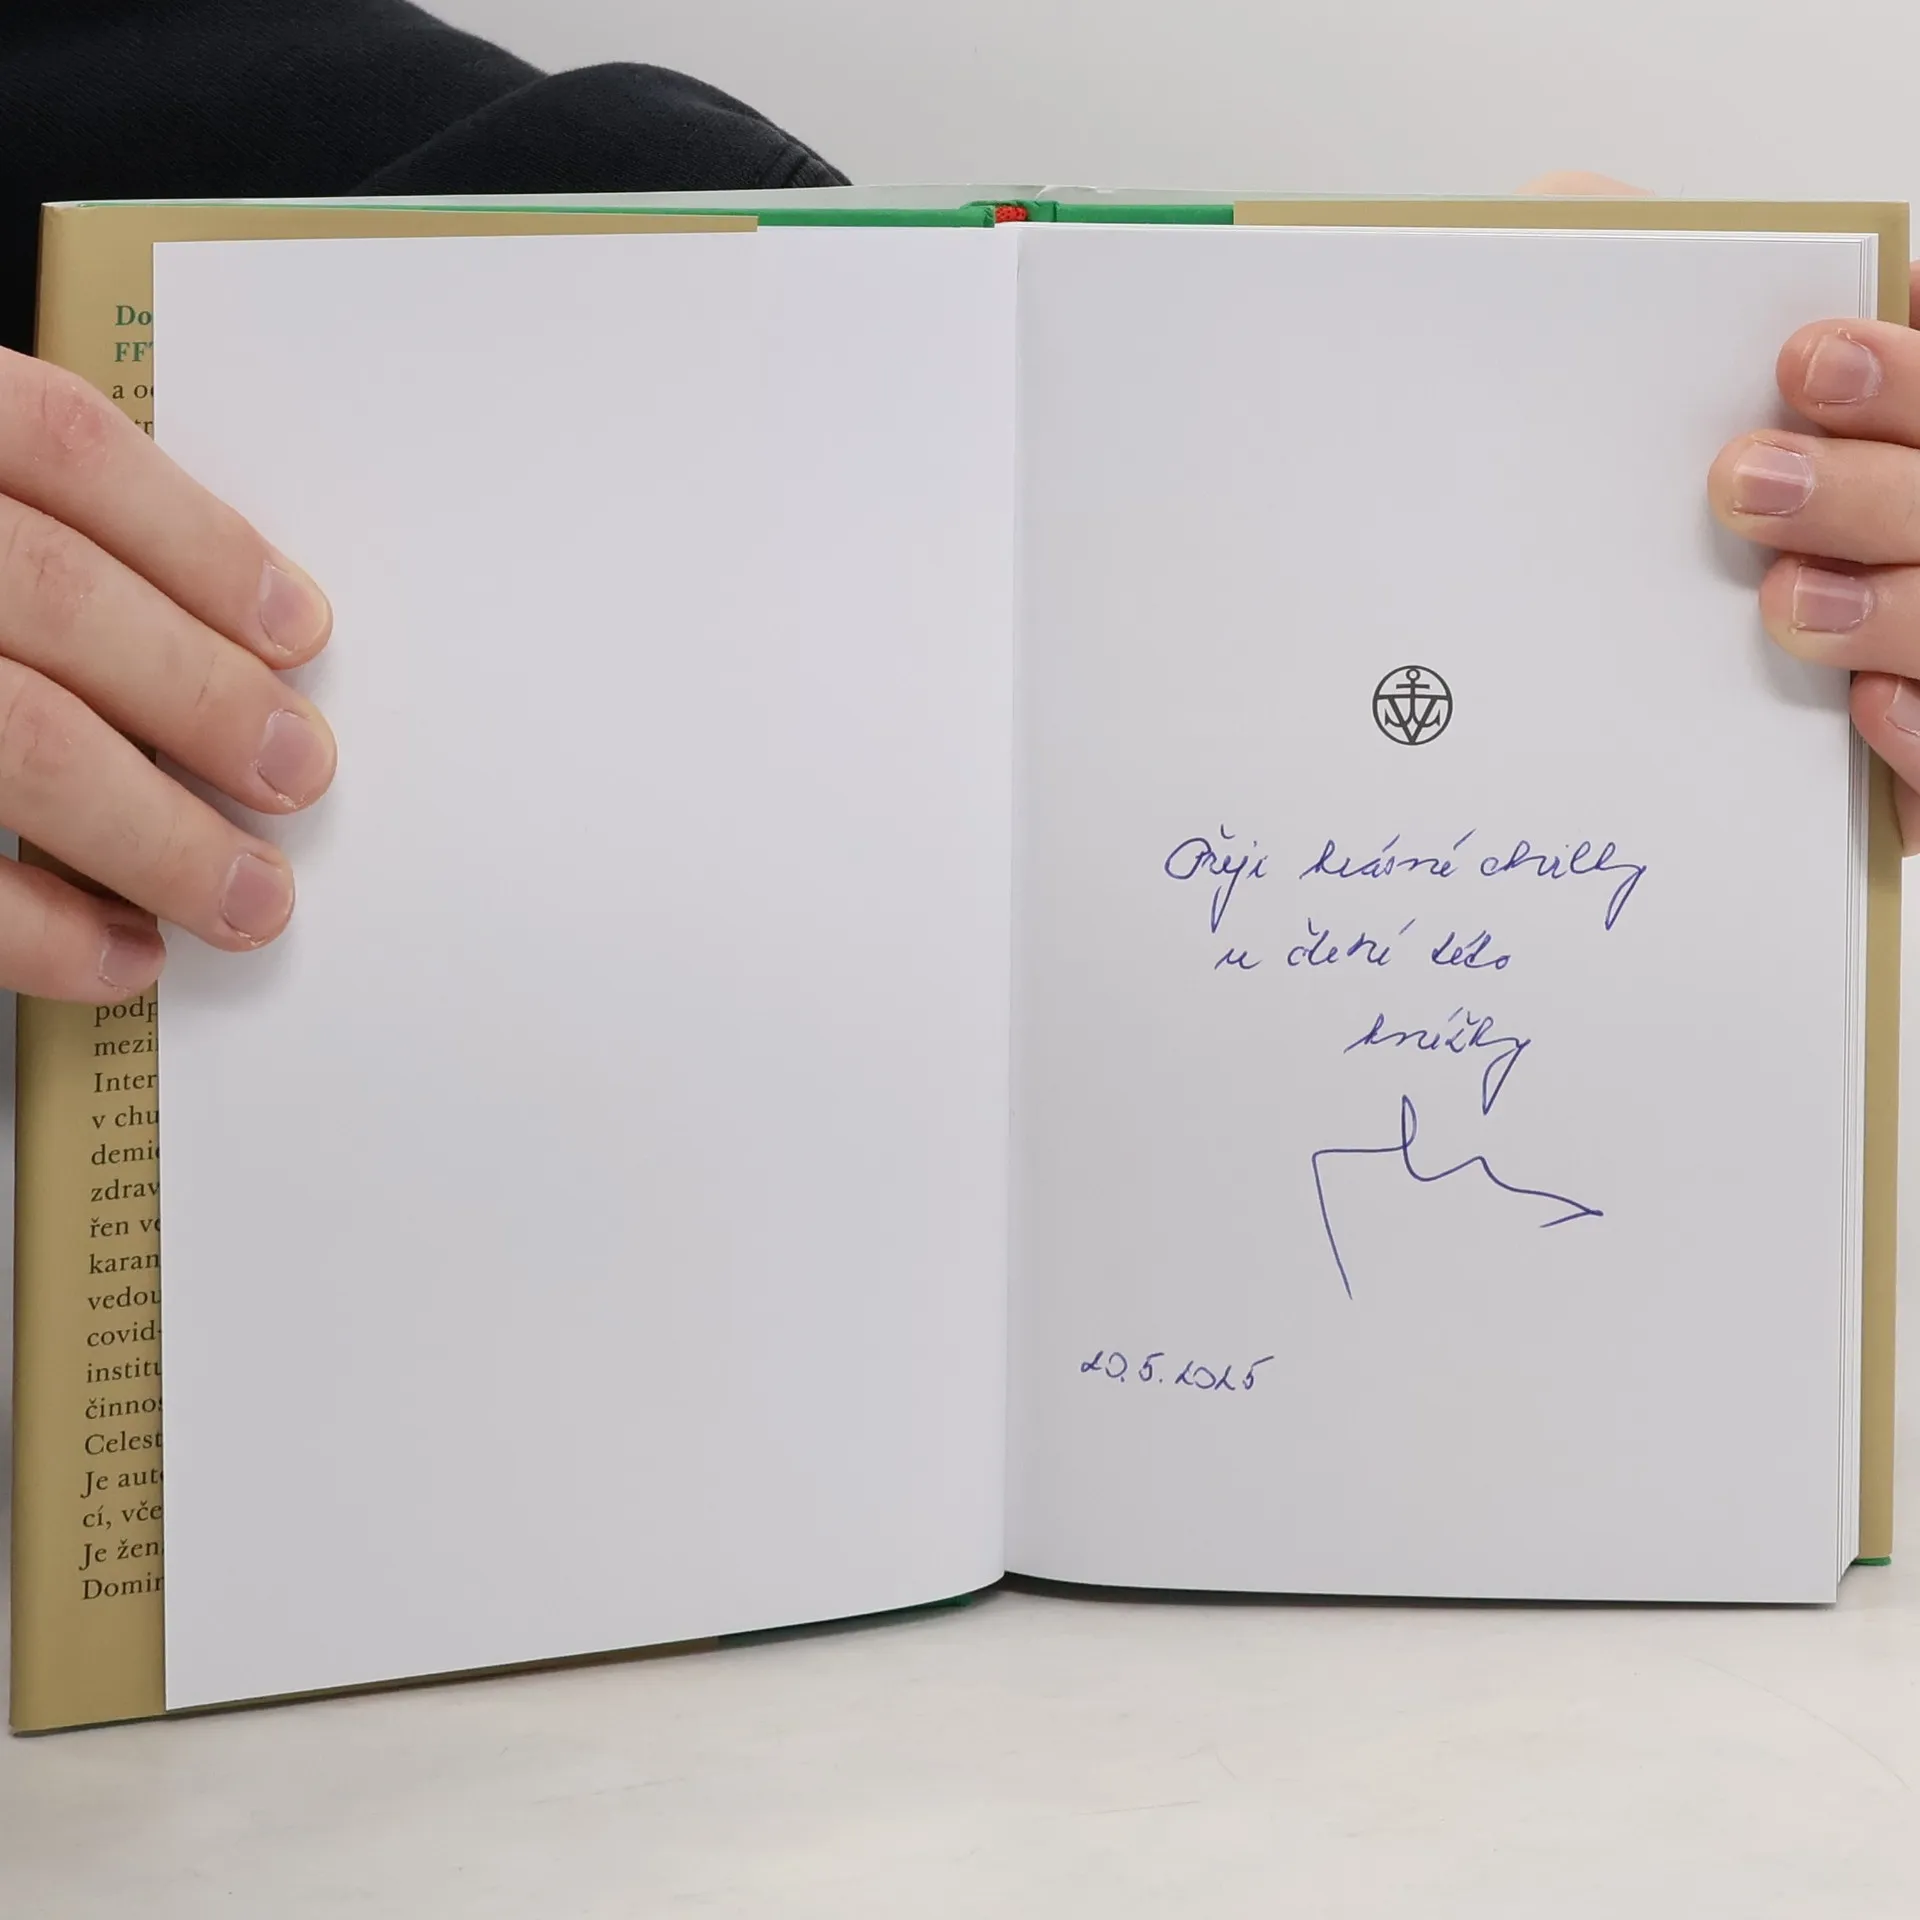 Do
FFT
a oc
podp
mezi
Inter
v chu
demic
zdrav
řen ve
karan
vedou
covid-
institu
činnos
Celest
Je auto
cí, vče
Je žen
Domin
Přeji krásné chvilky
u čtení této
knížky
20.5.2025